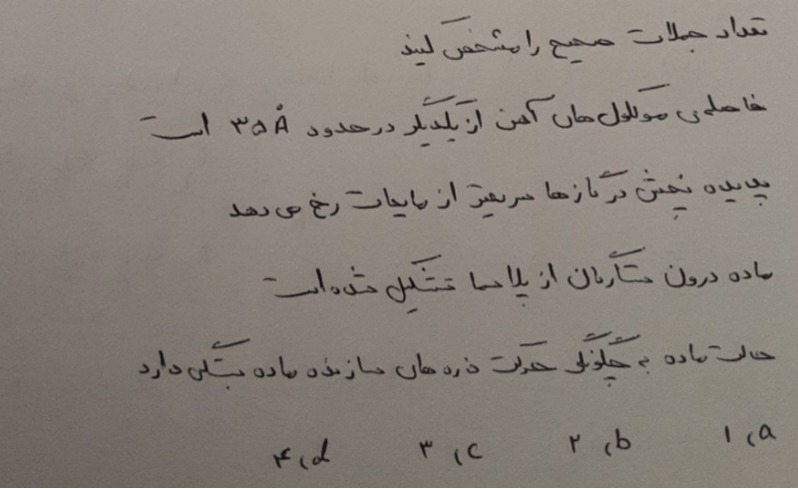 تعداد جملات صحیح را مشخص کنید
فاصله‌ی مولکول های آهن از یکدیگر در حدود ۳۵ Å است
پدیده پخش در گازها سریعتر از مایعات رخ می دهد
ماده درون ستارگان از پلاسما تشکیل شده است
حالت ماده به چگونگی حرکت ذره های سازنده ماده بستگی دارد
a) ۱ b) ۲ c) ۳ d) ۴